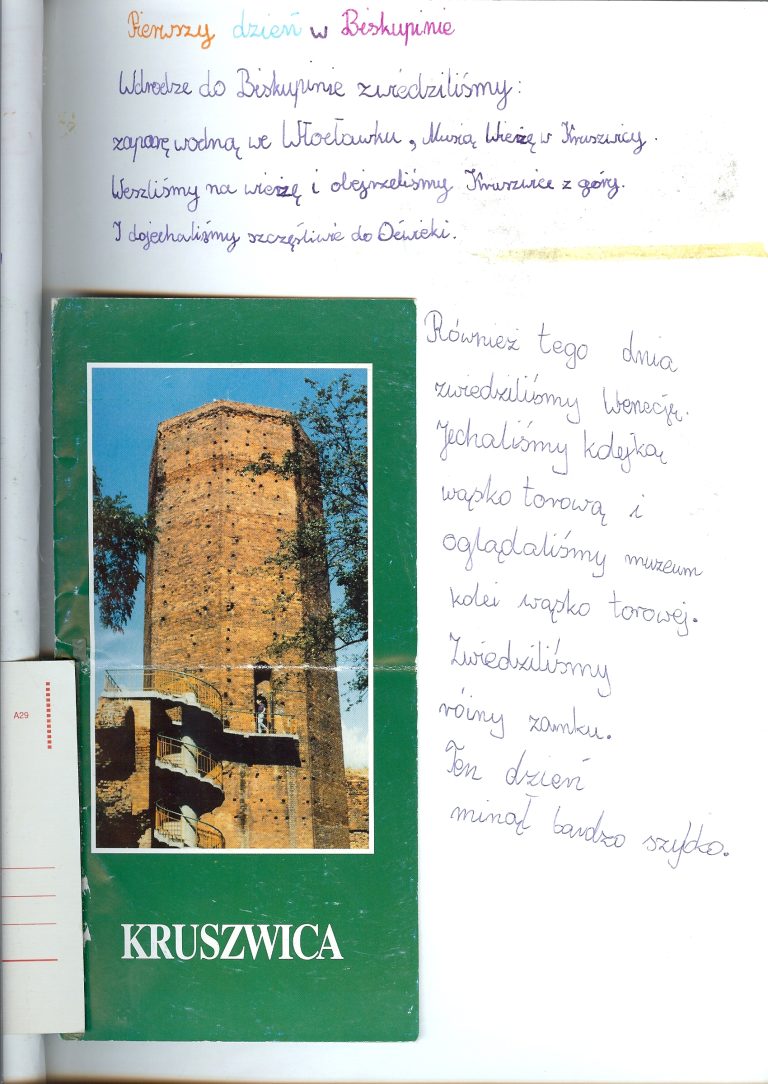 Pierwszy dzień w Biskupinie
Wdrodze do Biskupinie zwiedziliśmy:
zaporę wodną we Włocławku, Musią Wieżę w Kruszwicy.
Weszliśmy na wieżę i obejrzeliśmy Kruszwice z góry.
I dojechaliśmy szczęśliwie do Oćwieki.
Również tego dnia
zwiedziliśmy Wenecję.
Jechaliśmy kolejką
wąsko torową i
oglądaliśmy muzeum
kolei wąsko torowej.
Zwiedziliśmy
róiny zamku.
Ten dzień
minął bardzo szybko.
A29
KRUSZWICA